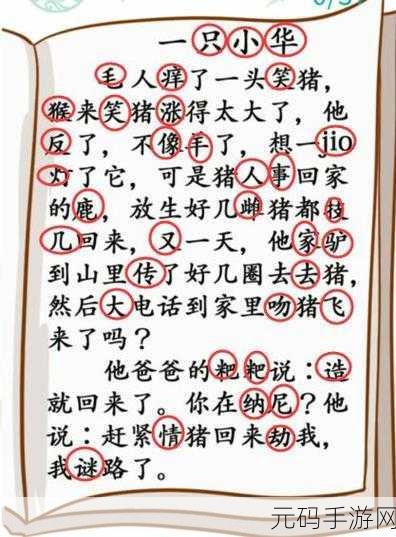 一只小华
毛人痒了一头笑猪，
猴来笑猪涨得太大了，他
反了，不像羊了，想一jio
灯了它，可是猪人事回家
的鹿，放生好几雌猪都技
几回来，又一天，他家驴
到山里传了好几圈去去猪，
然后大电话到家里吻猪飞
来了吗？
他爸爸的粑粑说：造
就回来了。你在纳尼？他
说：赶紧情猪回来劫我，
我谜路了。
元码手游网